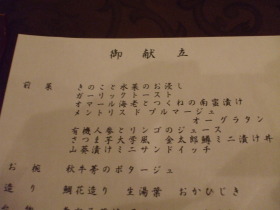 御献立
前菜 きのこと水菜のお浸し
ガーリックトースト
オマール海老とつくねの南蛮漬け
メントリスドブルマージュ
オーグラタン
有機人参とリンゴのジュース
さつま芋大学風 金太郎鱒ミニ漬け丼
山葵漬けミニサンドイッチ
お椀 秋牛蒡のポタージュ
造り 鯛花造り 生湯葉 おかひじき